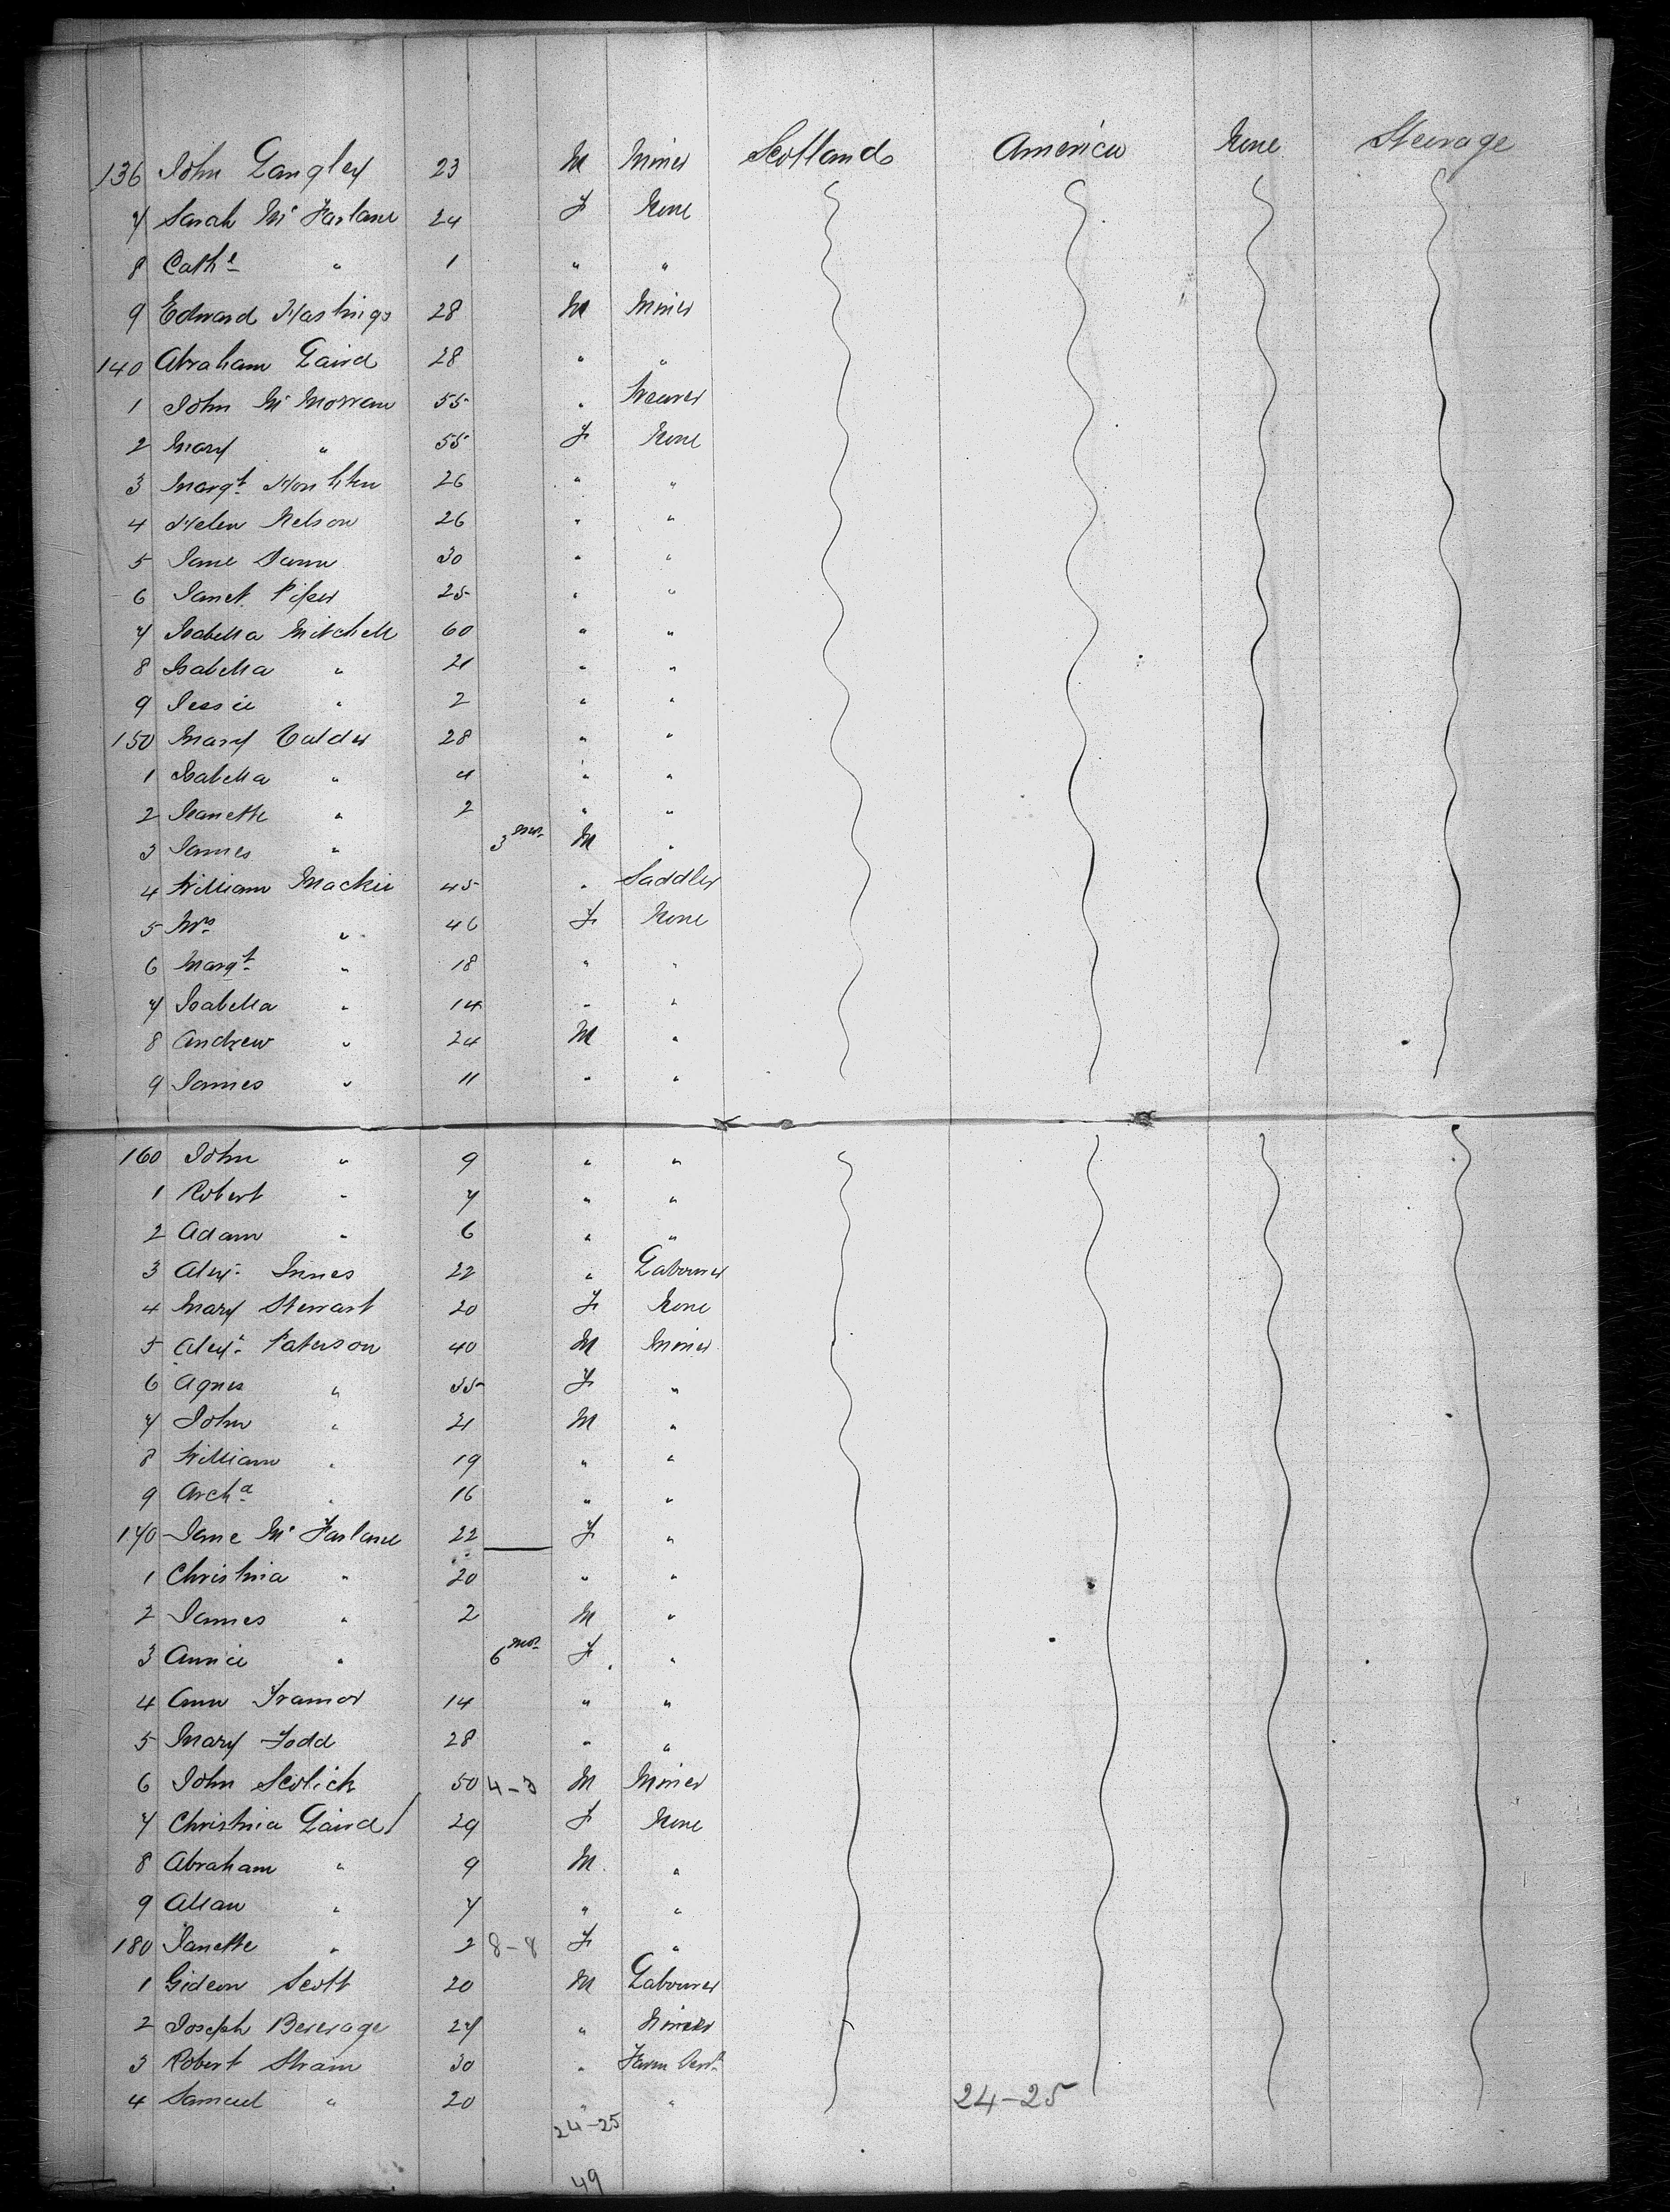 136 John Langley 23 M Miner Scotland America None Steerage
7 Sarah Mc Farlane 24 F None
8 Cathe " 1 " "
9 Edward Hastings 28 M Miner
140 Abraham Laird 28 " "
1 John Mc Morran 55 " Weaver
2 Mary " 55 F None
3 Margt 26 " "
4 Helen Nelson 26 " "
5 Jane 30 " "
6 Janet Piper 25 " "
7 Isabella Mitchell 60 " "
8 Isabella " 21 " "
9 Jessie " 2 " "
150 Mary Calder 28 " "
1 Isabella " 4 " "
2 Jeanette " 2 " "
3 James " 3 mos M "
4 William Mackie 45 " Saddler
5 Mrs " 46 F None
6 Margt " 18 " "
7 Isabella " 14 " "
8 Andrew " 24 M "
9 James " 11 " "
160 John " 9 " "
1 Robert " 7 " "
2 Adam " 6 " "
3 Alexr Innes 22 " Labourer
4 Mary Stewart 20 F None
5 Alexr Paterson 40 M Miner
6 Agnes " 35 F "
7 John " 21 M "
8 William " 19 " "
9 Archd " 16 " "
170 Jane Mc Farlane 22 F "
1 Christina " 20 " "
2 James " 2 M "
3 Annie " 6 mos F "
4 Ann 14 " "
5 Mary Todd 28 " "
6 John 50 4-3 M Miner
7 Christina Laird 29 F None
8 Abraham " 9 M "
9 Allan " 7 " "
180 Janette " 2 8-8 F "
1 Gideon Scott 20 M Labourer
2 Joseph Beverage 27 " Miner
3 Robert Strain 30 " Farm Servt
4 Samuel " 20 " " 24-25
24-25
49